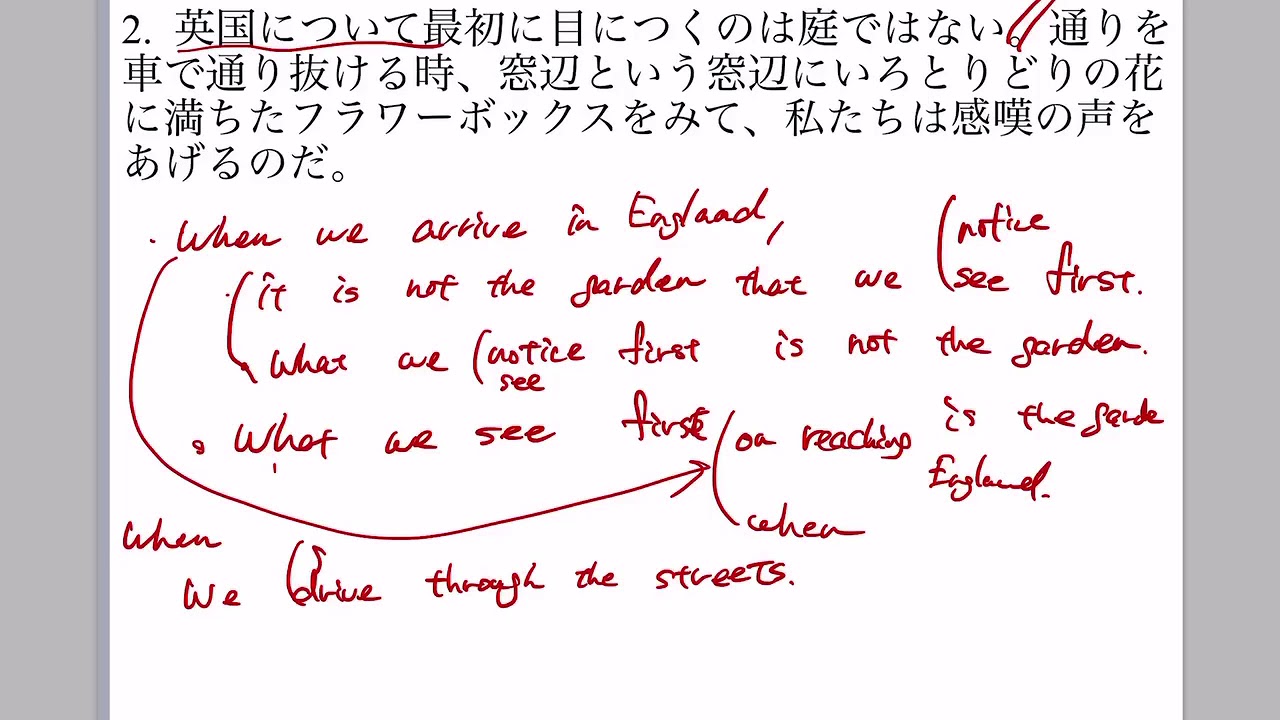 2. 英国について最初に目につくのは庭ではない。通りを
車で通り抜ける時、窓辺という窓辺にいろとりどりの花
に満ちたフラワーボックスをみて、私たちは感嘆の声を
あげるのだ。
· When we arrive in England, (notice
it is not the garden that we see first.
What we (notice first is not the garden.
see
What we see first (on reaching is the garde
England.
when
When
we drive through the streets.